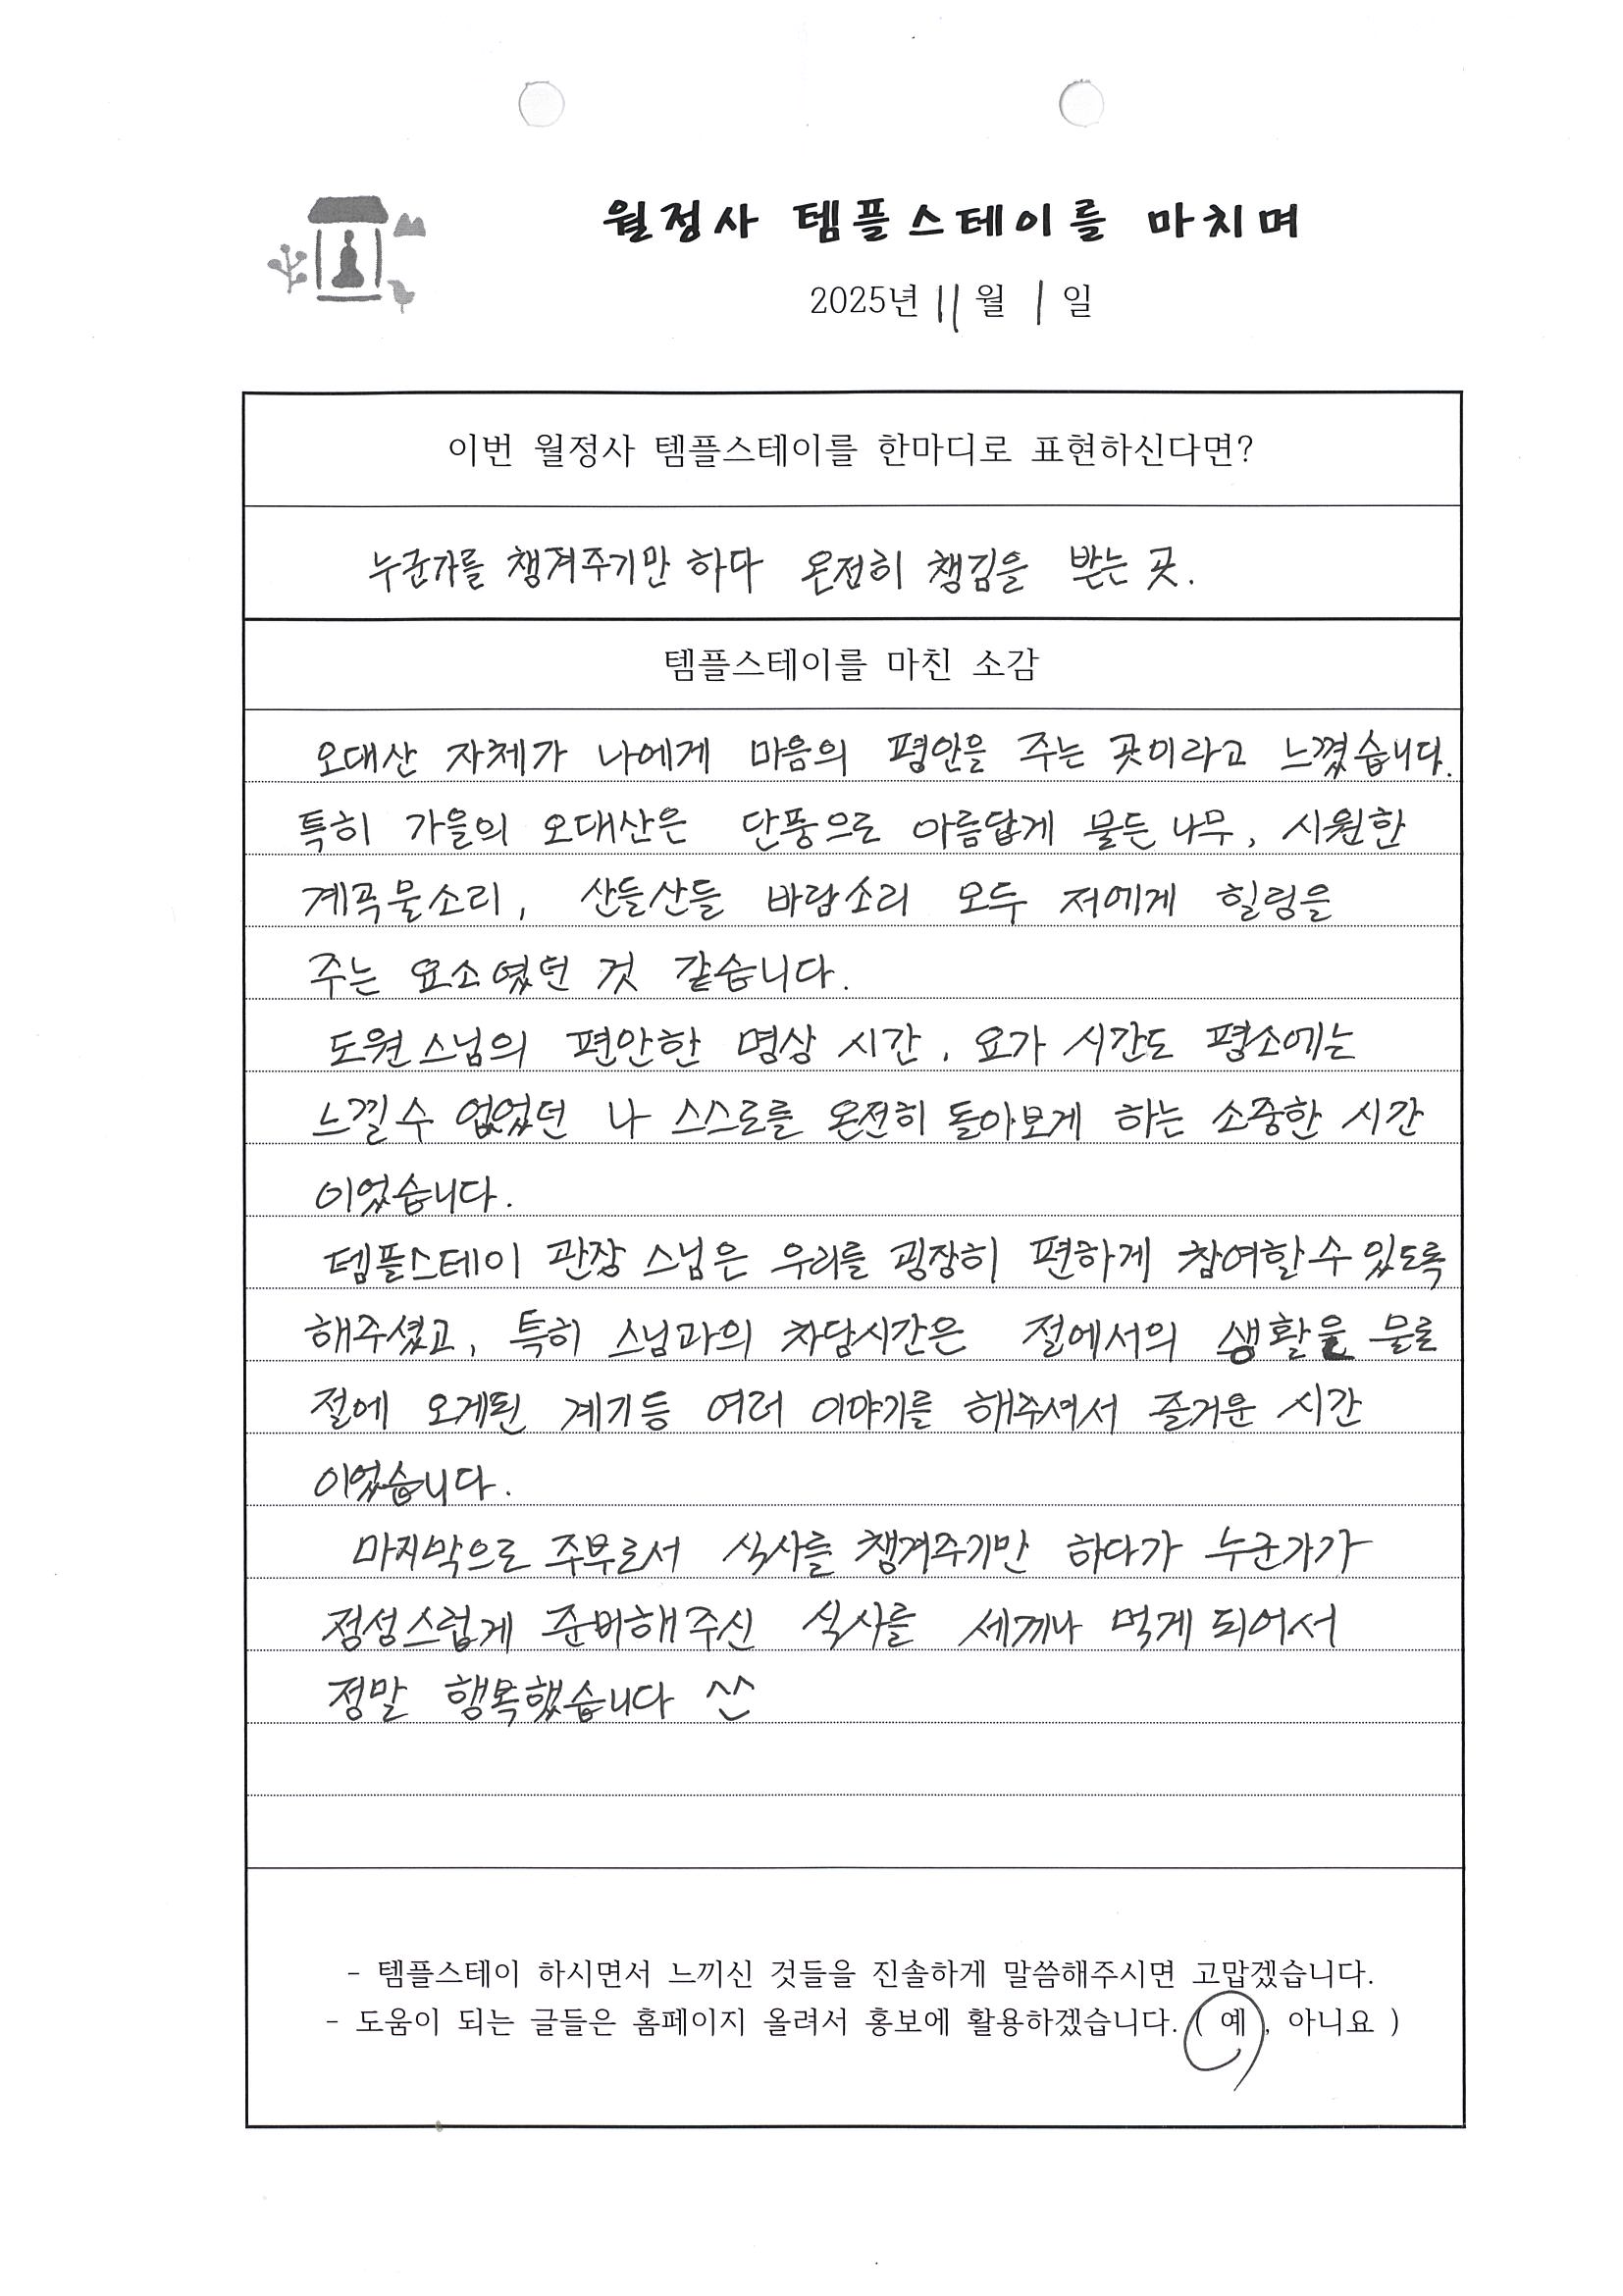 월정사 템플스테이를 마치며
2025년 11월 1일
이번 월정사 템플스테이를 한마디로 표현하신다면?
누군가를 챙겨주기만 하다 온전히 챙김을 받는 곳.
템플스테이를 마친 소감
오대산 자체가 나에게 마음의 평안을 주는 곳이라고 느꼈습니다.
특히 가을의 오대산은 단풍으로 아름답게 물든 나무, 시원한
계곡물소리, 산들산들 바람소리 모두 저에게 힐링을
주는 요소였던 것 같습니다.
도원스님의 편안한 명상 시간, 요가 시간도 평소에는
느낄수 없었던 나 스스로를 온전히 돌아보게 하는 소중한 시간
이었습니다.
템플스테이 관장 스님은 우리를 굉장히 편하게 참여할수있도록
해주셨고, 특히 스님과의 차담시간은 절에서의 생활을 물론
절에 오게된 계기등 여러 이야기를 해주셔서 즐거운 시간
이었습니다.
마지막으로 주부로서 식사를 챙겨주기만 하다가 누군가가
정성스럽게 준비해주신 식사를 세끼나 먹게 되어서
정말 행복했습니다 ^^
- 템플스테이 하시면서 느끼신 것들을 진솔하게 말씀해주시면 고맙겠습니다.
- 도움이 되는 글들은 홈페이지 올려서 홍보에 활용하겠습니다. ( 예 , 아니요 )